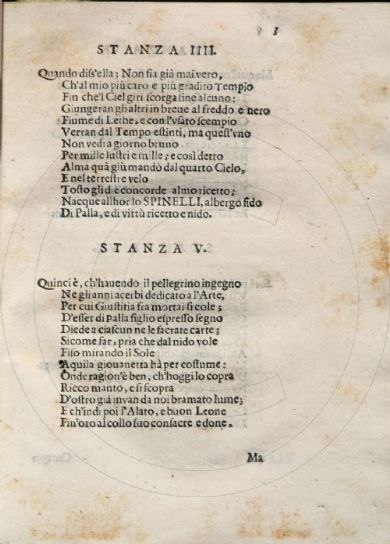 3
STANZA IIII.
Quando diss'ella; Non fia già mai vero,
Ch'al mio più caro e più gradito Tempio
Fin che'l Ciel giri scorga fine alcuno:
Giungeran gli altri in breue al freddo e nero
Fiume di Lethe, e con l'vsato scempio
Verran dal Tempo estinti, ma quest'vno
Non vedrà giorno bruno
Per mille lustri e mille; e così detto
Alma quà giù mandò dal quarto Cielo,
E nel terrestre velo
Tosto gli diè concorde almo ricetto;
Nacque allhor lo SPINELLI, albergo fido
Di Palla, e di vittù ricetto e nido.
STANZA V.
Quinci è, ch'hauendo il pellegrino ingegno
Ne gli anni acerbi dedicato a l'Arte,
Per cui Giustitia fra mortai si cole;
D'esser di Palla figlio espresso segno
Diede a ciascun ne le sacrate carte;
Sicome far, pria che dal nido vole
Fiso mirando il Sole
Aquila giouanetta hà per costume:
Onde ragion'è ben, ch'hoggi lo copra
Ricco manto, e si scopra
D'ostro già invan da noi bramato lume;
E ch'indi poi l'Alato, e buon Leone
Fin'oro al collo suo consacre e done.
Ma